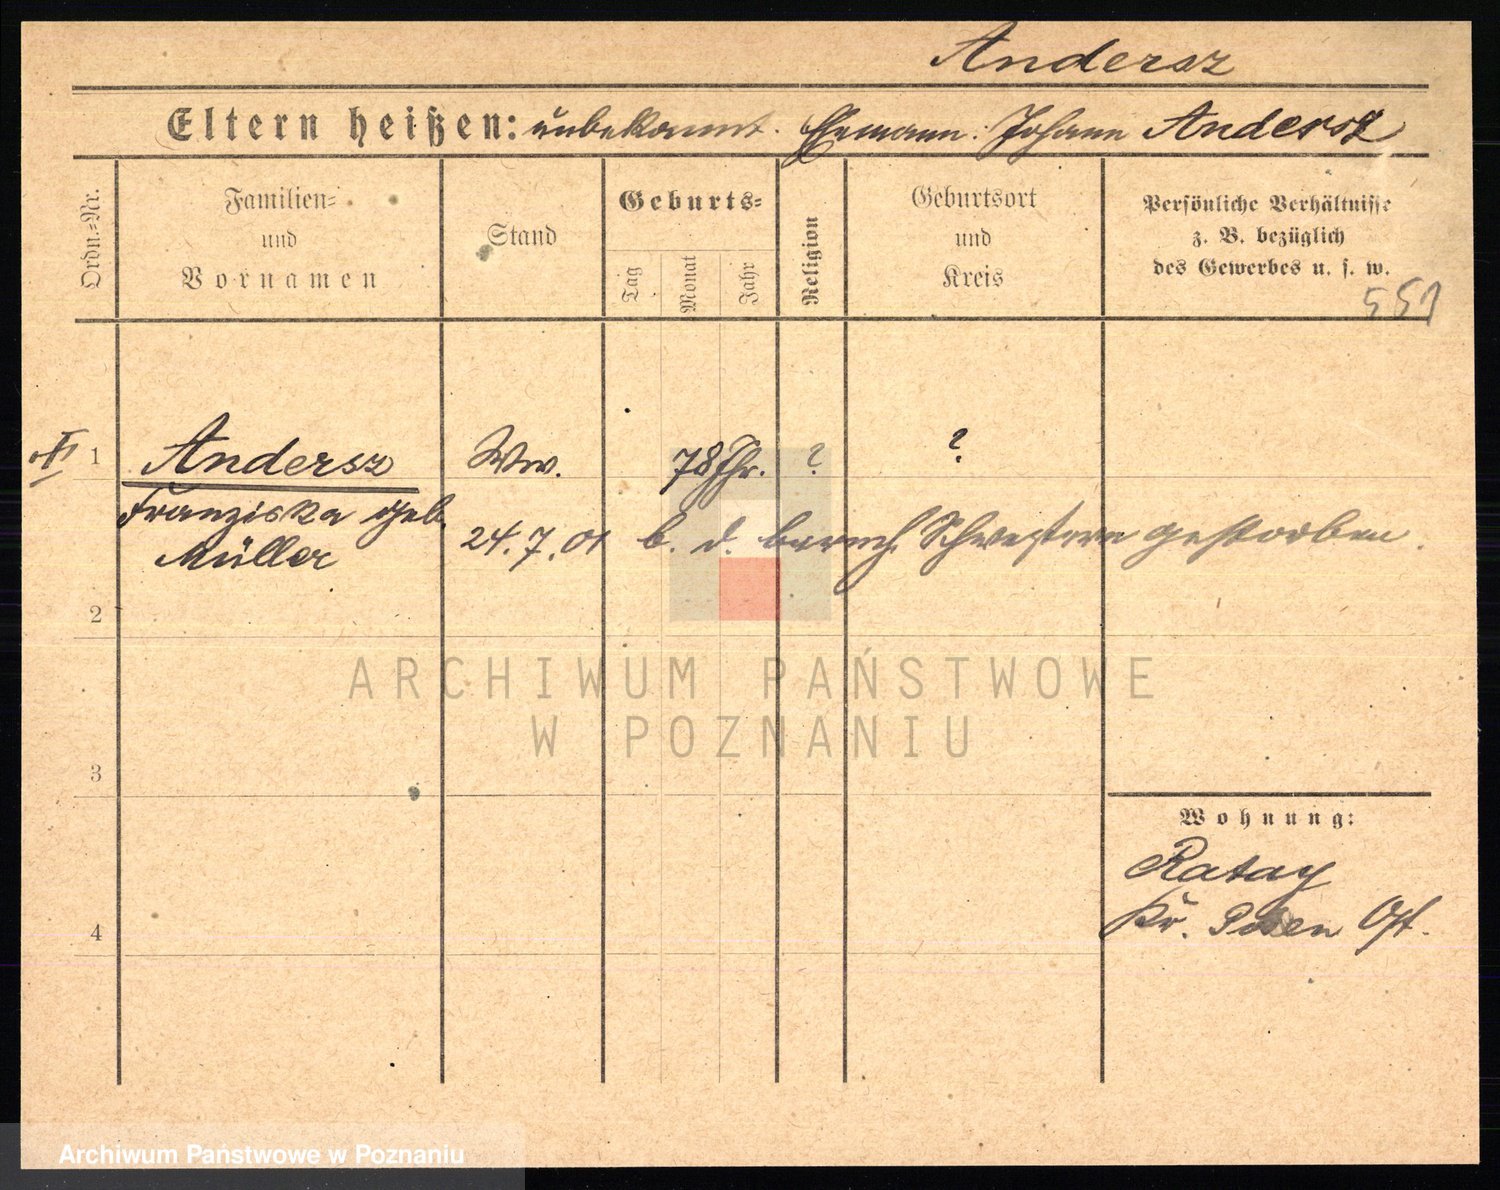 Andersz
Eltern heißen: unbekannt. Ehemann: Johann Andersz
Ordn.=Nr.
Familien=
und
Vornamen
Stand
Geburts=
Tag
Monat
Jahr
Religion
Geburtsort
und
Kreis
Persönliche Verhältnisse
z. B. bezüglich
des Gewerbes u. s. w.
551
1 Andersz Ww. 78 Jhr. ? ?
Franziska geb.
Müller
24.7.01 b. d. barmh. Schwestern gestorben.
2
ARCHIWUM PAŃSTWOWE
W POZNANIU
3
Wohnung:
Ratay
Kr. Posen Ost.
4
Archiwum Państwowe w Poznaniu